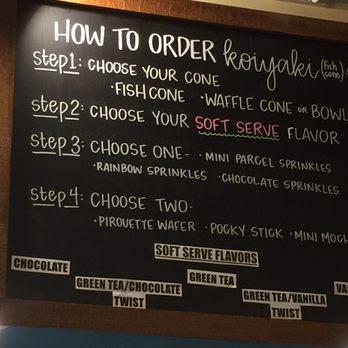 HOW TO ORDER koiyaki (fish cone)
step 1: CHOOSE YOUR CONE
· FISH CONE · WAFFLE CONE OR BOWL
step 2: CHOOSE YOUR SOFT SERVE FLAVOR
step 3: CHOOSE ONE- · MINI PARGEL SPRINKLES
· RAINBOW SPRINKLES · CHOCOLATE SPRINKLES
step 4: CHOOSE TWO-
· PIROUETTE WAFER · POCKY STICK · MINI MOCH
SOFT SERVE FLAVORS
CHOCOLATE
GREEN TEA/CHOCOLATE TWIST
GREEN TEA
GREEN TEA/VANILLA TWIST
VA